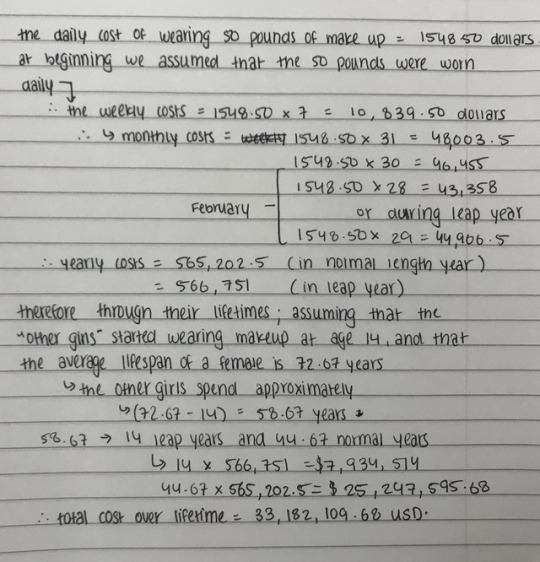 the daily cost of wearing 50 pounds of make up = 1548.50 dollars.
at beginning we assumed that the 50 pounds were worn
daily
∴ the weekly costs = 1548.50 × 7 = 10,839.50 dollars
∴ ↳ monthly costs = weekly 1548.50 × 31 = 48,003.5
1548.50 × 30 = 46,455
1548.50 × 28 = 43,358
February - or during leap year
1548.50 × 29 = 44,906.5
∴ yearly costs = 565,202.5 (in normal length year)
= 566,751 (in leap year)
therefore through their lifetimes; assuming that the
"other girls" started wearing makeup at age 14, and that
the average lifespan of a female is 72.67 years
↳ the other girls spend approximately
↳ (72.67 - 14) = 58.67 years
58.67 → 14 leap years and 44.67 normal years
↳ 14 × 566,751 = $7,934,514
44.67 × 565,202.5 = $25,247,595.68
∴ total cost over lifetime = 33,182,109.68 USD.